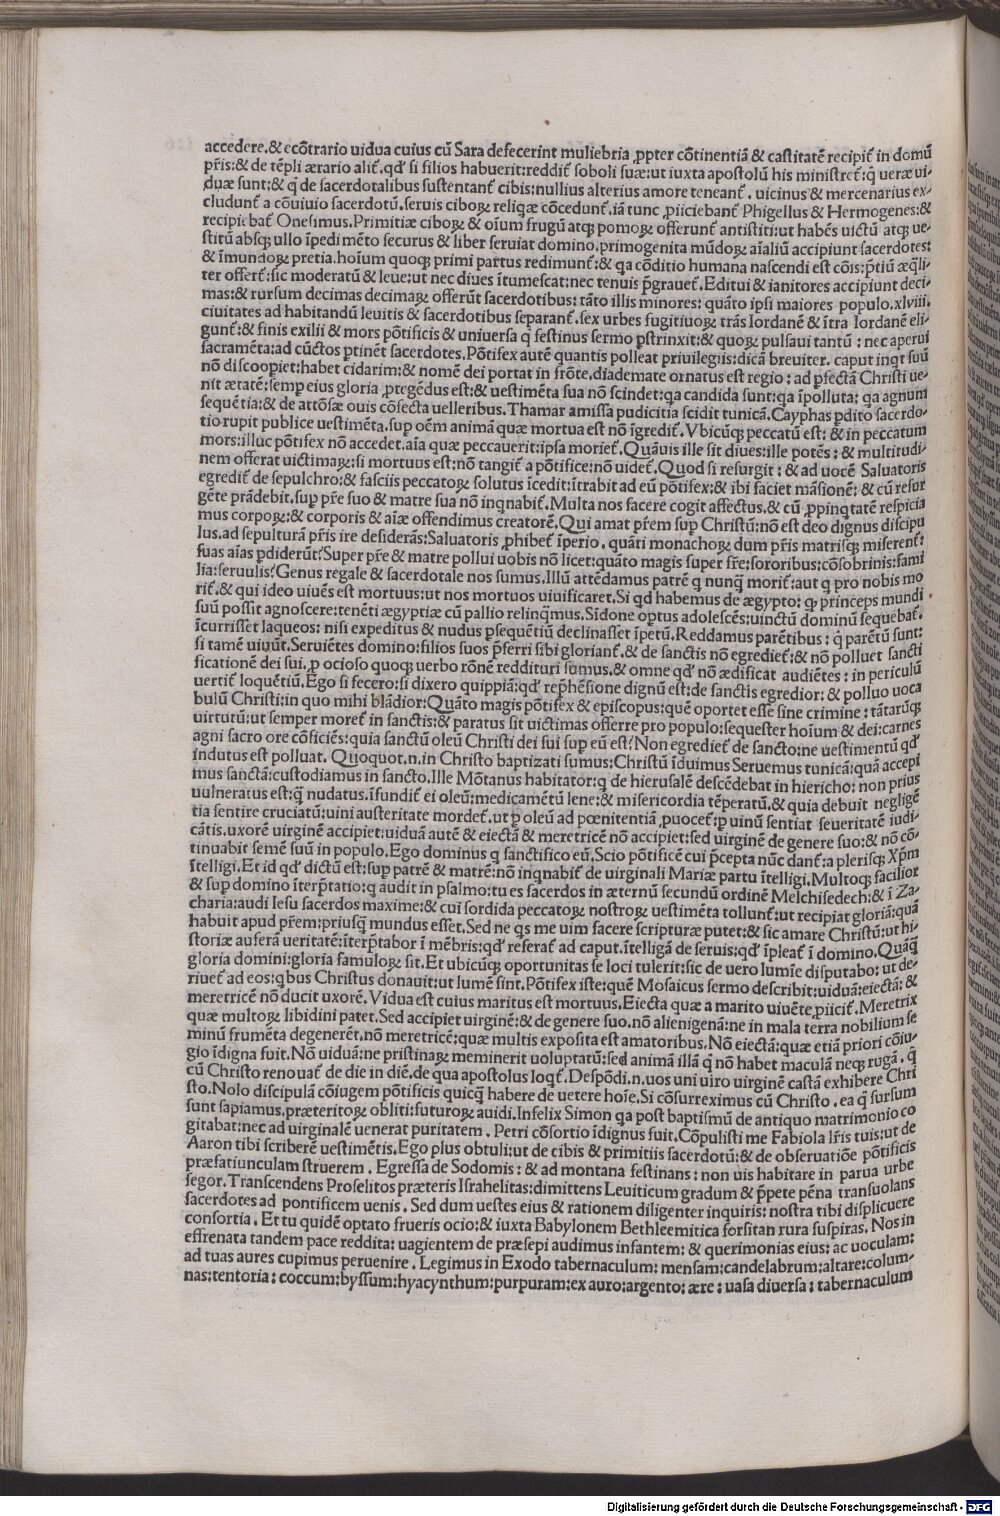 accedere.& ecōtrario uidua cuius cū Sara defecerint muliebria ꝓpter cōtinentiā & castitatē recipit̄ in domū
pr̄is:& de tēpli ærario alit̄.qd' si filios habuerit:reddit̄ soboli suæ:ut iuxta apostolū his ministret̄:q̄ ueræ ui-
duæ sunt:& q̄ de sacerdotalibus sustentant̄ cibis:nullius alterius amore teneant̄. uicinus & mercenarius ex-
cludunt̄ a cōuiuio sacerdotū.seruis ciboꝝ reliqæ cōcedunt̄.iā tunc ꝓiiciebant̄ Phigellus & Hermogenes:&
recipiebat̄ Onesimus.Primitiæ ciboꝝ & oīum frugū atqꝫ pomoꝝ offerunt̄ antistiti:ut habēs uictū atqꝫ ue-
stitū absqꝫ ullo īpedimēto securus & liber seruiat domino.primogenita mūdoꝝ aīaliū accipiunt sacerdotes:
& īmundoꝝ pretia.hoīum quoqꝫ primi partus redimunt̄:& qa cōditio humana nascendi est cōis:p̄tiū æq̄li-
ter offert̄:sic moderatū & leue:ut nec diues ītumescat:nec tenuis p̄grauet̄.Editui & ianitores accipiunt deci-
mas:& rursum decimas decimaꝝ offerūt sacerdotibus: tāto illis minores: quāto ipsi maiores populo.xlviii.
ciuitates ad habitandū leuitis & sacerdotibus separant̄.sex urbes fugitiuoꝝ trās Iordanē & ītra Iordanē eli-
gunt̄:& finis exilii & mors pōtificis & uniuersa q̄ festinus sermo ꝑstrinxit:& quoꝝ pulsaui tantū : nec aperui
sacramēta:ad cūctos ꝑtinēt sacerdotes.Pōtifex autē quantis polleat priuilegiis:dicā breuiter. caput inqt suū
nō discoopiet:habet cidarim:& nomē dei portat in frōte.diademate ornatus est regio : ad ꝑfectā Christi ue-
nit ætatē:semꝑ eius gloria ꝓtegēdus est:& uestimēta sua nō scindet:qa candida sunt:qa īpolluta: qa agnum
sequētia:& de attōsæ ouis cōfecta uelleribus.Thamar amissa pudicitia scidit tunicā.Cayphas ꝑdito sacerdo-
tio rupit publice uestimēta.sup oēm animā quæ mortua est nō īgredit̄.Vbicūqꝫ peccatū est: & in peccatum
mors:illuc pōtifex nō accedet.aīa quæ peccauerit:ipsa moriet̄.Quāuis ille sit diues:ille potēs : & multitudi-
nem offerat uictimaꝝ:si mortuus est:nō tangit̄ a pōtifice:nō uidet̄.Quod si resurgit : & ad uocē Saluatoris
egredit̄ de sepulchro:& fasciis peccatoꝝ solutus īcedit:ītrabit ad eū pōtifex:& ibi faciet māsionē: & cū resur
gēte prādebit.sup p̄re suo & matre sua nō inqnabit̄.Multa nos facere cogit affectus.& cū ꝓpinqtatē respicia
mus corpoꝝ:& corporis & aīæ offendimus creatorē.Qui amat pr̄em sup Christū:nō est deo dignus discipu
lus.ad sepulturā pr̄is ire desiderās:Saluatoris ꝓhibet̄ īperio. quāti monachoꝝ dum pr̄is matrisqꝫ miserent̄:
suas aīas ꝑdiderūt?Super p̄re & matre pollui uobis nō licet:quāto magis super fr̄e:sororibus:cōsobrinis:fami
lia:seruulis?Genus regale & sacerdotale nos sumus.Illū attēdamus patrē q nunq̄ morit̄:aut q pro nobis mo
rit̄.& qui ideo uiuēs est mortuus:ut nos mortuos uiuificaret.Si qd habemus de ægypto: qꝫ princeps mundi
suū possit agnoscere:tenēti ægyptiæ cū pallio relinq̄mus.Sīdone optus adolescēs:uinctū dominū sequebat̄.
īcurrisset laqueos: nisi expeditus & nudus ꝑsequētiū declinasset īpetū.Reddamus parētibus : q̄ parētū sunt:
si tamē uiuūt.Seruiētes domino:filios suos p̄ferri sibi gloriant̄.& de sanctis nō egrediet̄:& nō polluet sancti
ficationē dei sui.ꝓ ocioso quoqꝫ uerbo rōnē reddituri sumus.& omne qd' nō ædificat audiētes : in periculū
uertit̄ loquētiū.Ego si fecero:si dixero quippiā:qd' rep̄hēsione dignū est:de sanctis egredior: & polluo uoca
bulū Christi:in quo mihi blādior:Quāto magis pōtifex & episcopus:quē oportet esse sine crimine : tātarūqꝫ
uirtutū:ut semper moret̄ in sanctis:& paratus sit uictimas offerre pro populo:sequester hoīum & dei:carnes
agni sacro ore cōficiēs:quia sanctū oleū Christi dei sui sup eū est?Non egrediet̄ de sancto:ne uestimentū qd'
indutus est polluat. Quoquot.n.in Christo baptizati sumus:Christū īduimus Seruemus tunicā:quā accepi
mus sanctā:custodiamus in sancto.Ille Mōtanus habitator:q de hierusalē descēdebat in hiericho: non prius
uulneratus est:q̄ nudatus.īfundit̄ ei oleū:medicamētū lene:& misericordia tēperatū.& quia debuit negligē
tia sentire cruciatū:uini austeritate mordet̄.ut ꝑ oleū ad pœnitentiā ꝓuocet̄:ꝑ uinū sentiat seueritatē iudi-
cātis.uxorē uirginē accipiet:uiduā autē & eiectā & meretricē nō accipiet:sed uirginē de genere suo:& nō cō-
tinuabit semē suū in populo.Ego dominus q sanctifico eū.Scio pōtificē cui p̄cepta nūc dant̄:a plerisqꝫ Xp̄m
ītelligi.Et id qd' dictū est:sup patrē & matrē:nō inqnabit̄ de uirginali Mariæ partu ītelligi.Multoqꝫ facilior
& sup domino īterp̄tatio:q audit in psalmo:tu es sacerdos in æternū secundū ordinē Melchisedech:& ī Za-
charia:audi Iesu sacerdos maxime:& cui sordida peccatoꝝ nostroꝝ uestimēta tollunt̄:ut recipiat gloriā:quā
habuit apud pr̄em:priusq̄ mundus esset.Sed ne qs me uim facere scripturæ putet:& sic amare Christū:ut hi-
storiæ auferā ueritatē:īterp̄tabor ī mēbris:qd' referat̄ ad caput.ītelligā de seruis:qd' īpleat̄ ī domino.Quāq̄
gloria domini:gloria famuloꝝ sit.Et ubicūqꝫ oportunitas se loci tulerit:sic de uero lumīe disputabo: ut de-
riuet̄ ad eos:qbus Christus donauit:ut lumē sint.Pōtifex iste:quē Mosaicus sermo describit:uiduā:eiectā: &
meretricē nō ducit uxorē.Vidua est cuius maritus est mortuus.Eiecta quæ a marito uiuēte ꝓiicit̄.Meretrix
quæ multoꝝ libidini patet.Sed accipiet uirginē:& de genere suo.nō alienigenā:ne in mala terra nobilium se
minū frumēta degenerēt.nō meretricē:quæ multis exposita est amatoribus.Nō eiectā:quæ etiā priori cōiu-
gio īdigna fuit.Nō uiduā:ne pristinaꝝ meminerit uoluptatū:sed animā illā q̄ nō habet maculā neqꝫ rugā. q̄
cū Christo renouat̄ de die in diē.de qua apostolus loqt̄.Despōdi.n.uos uni uiro uirginē castā exhibere Chri
sto.Nolo discipulā cōiugem pōtificis quicq̄ habere de uetere hoīe.Si cōsurreximus cū Christo.ea q̄ sursum
sunt sapiamus.præteritoꝝ obliti:futuroꝝ auidi.Infelix Simon qa post baptismū de antiquo matrimonio co
gitabat:nec ad uirginalē uenerat puritatem. Petri cōsortio īdignus fuit.Cōpulisti me Fabiola lr̄is tuis:ut de
Aaron tibi scriberē uestimētis.Ego plus obtuli:ut de cibis & primitiis sacerdotū:& de obseruatiōe pōtificis
præfatiunculam struerem. Egressa de Sodomis : & ad montana festinans : non uis habitare in parua urbe
segor.Transcendens Proselitos præteris Israhelitas:dimittens Leuiticum gradum & p̄pete pēna transuolans
sacerdotes ad pontificem uenis. Sed dum uestes eius & rationem diligenter inquiris: nostra tibi displicuere
consortia. Et tu quidē optato frueris ocio:& iuxta Babylonem Bethleemitica forsitan rura suspiras. Nos in
effrenata tandem pace reddita: uagientem de præsepi audimus infantem: & querimonias eius: ac uoculam:
ad tuas aures cupimus peruenire. Legimus in Exodo tabernaculum: mensam:candelabrum:altare:colum-
nas:tentoria: coccum:byssum:hyacynthum:purpuram:ex auro:argento: ære : uasa diuersa : tabernaculum
Digitalisierung gefördert durch die Deutsche Forschungsgemeinschaft - DFG